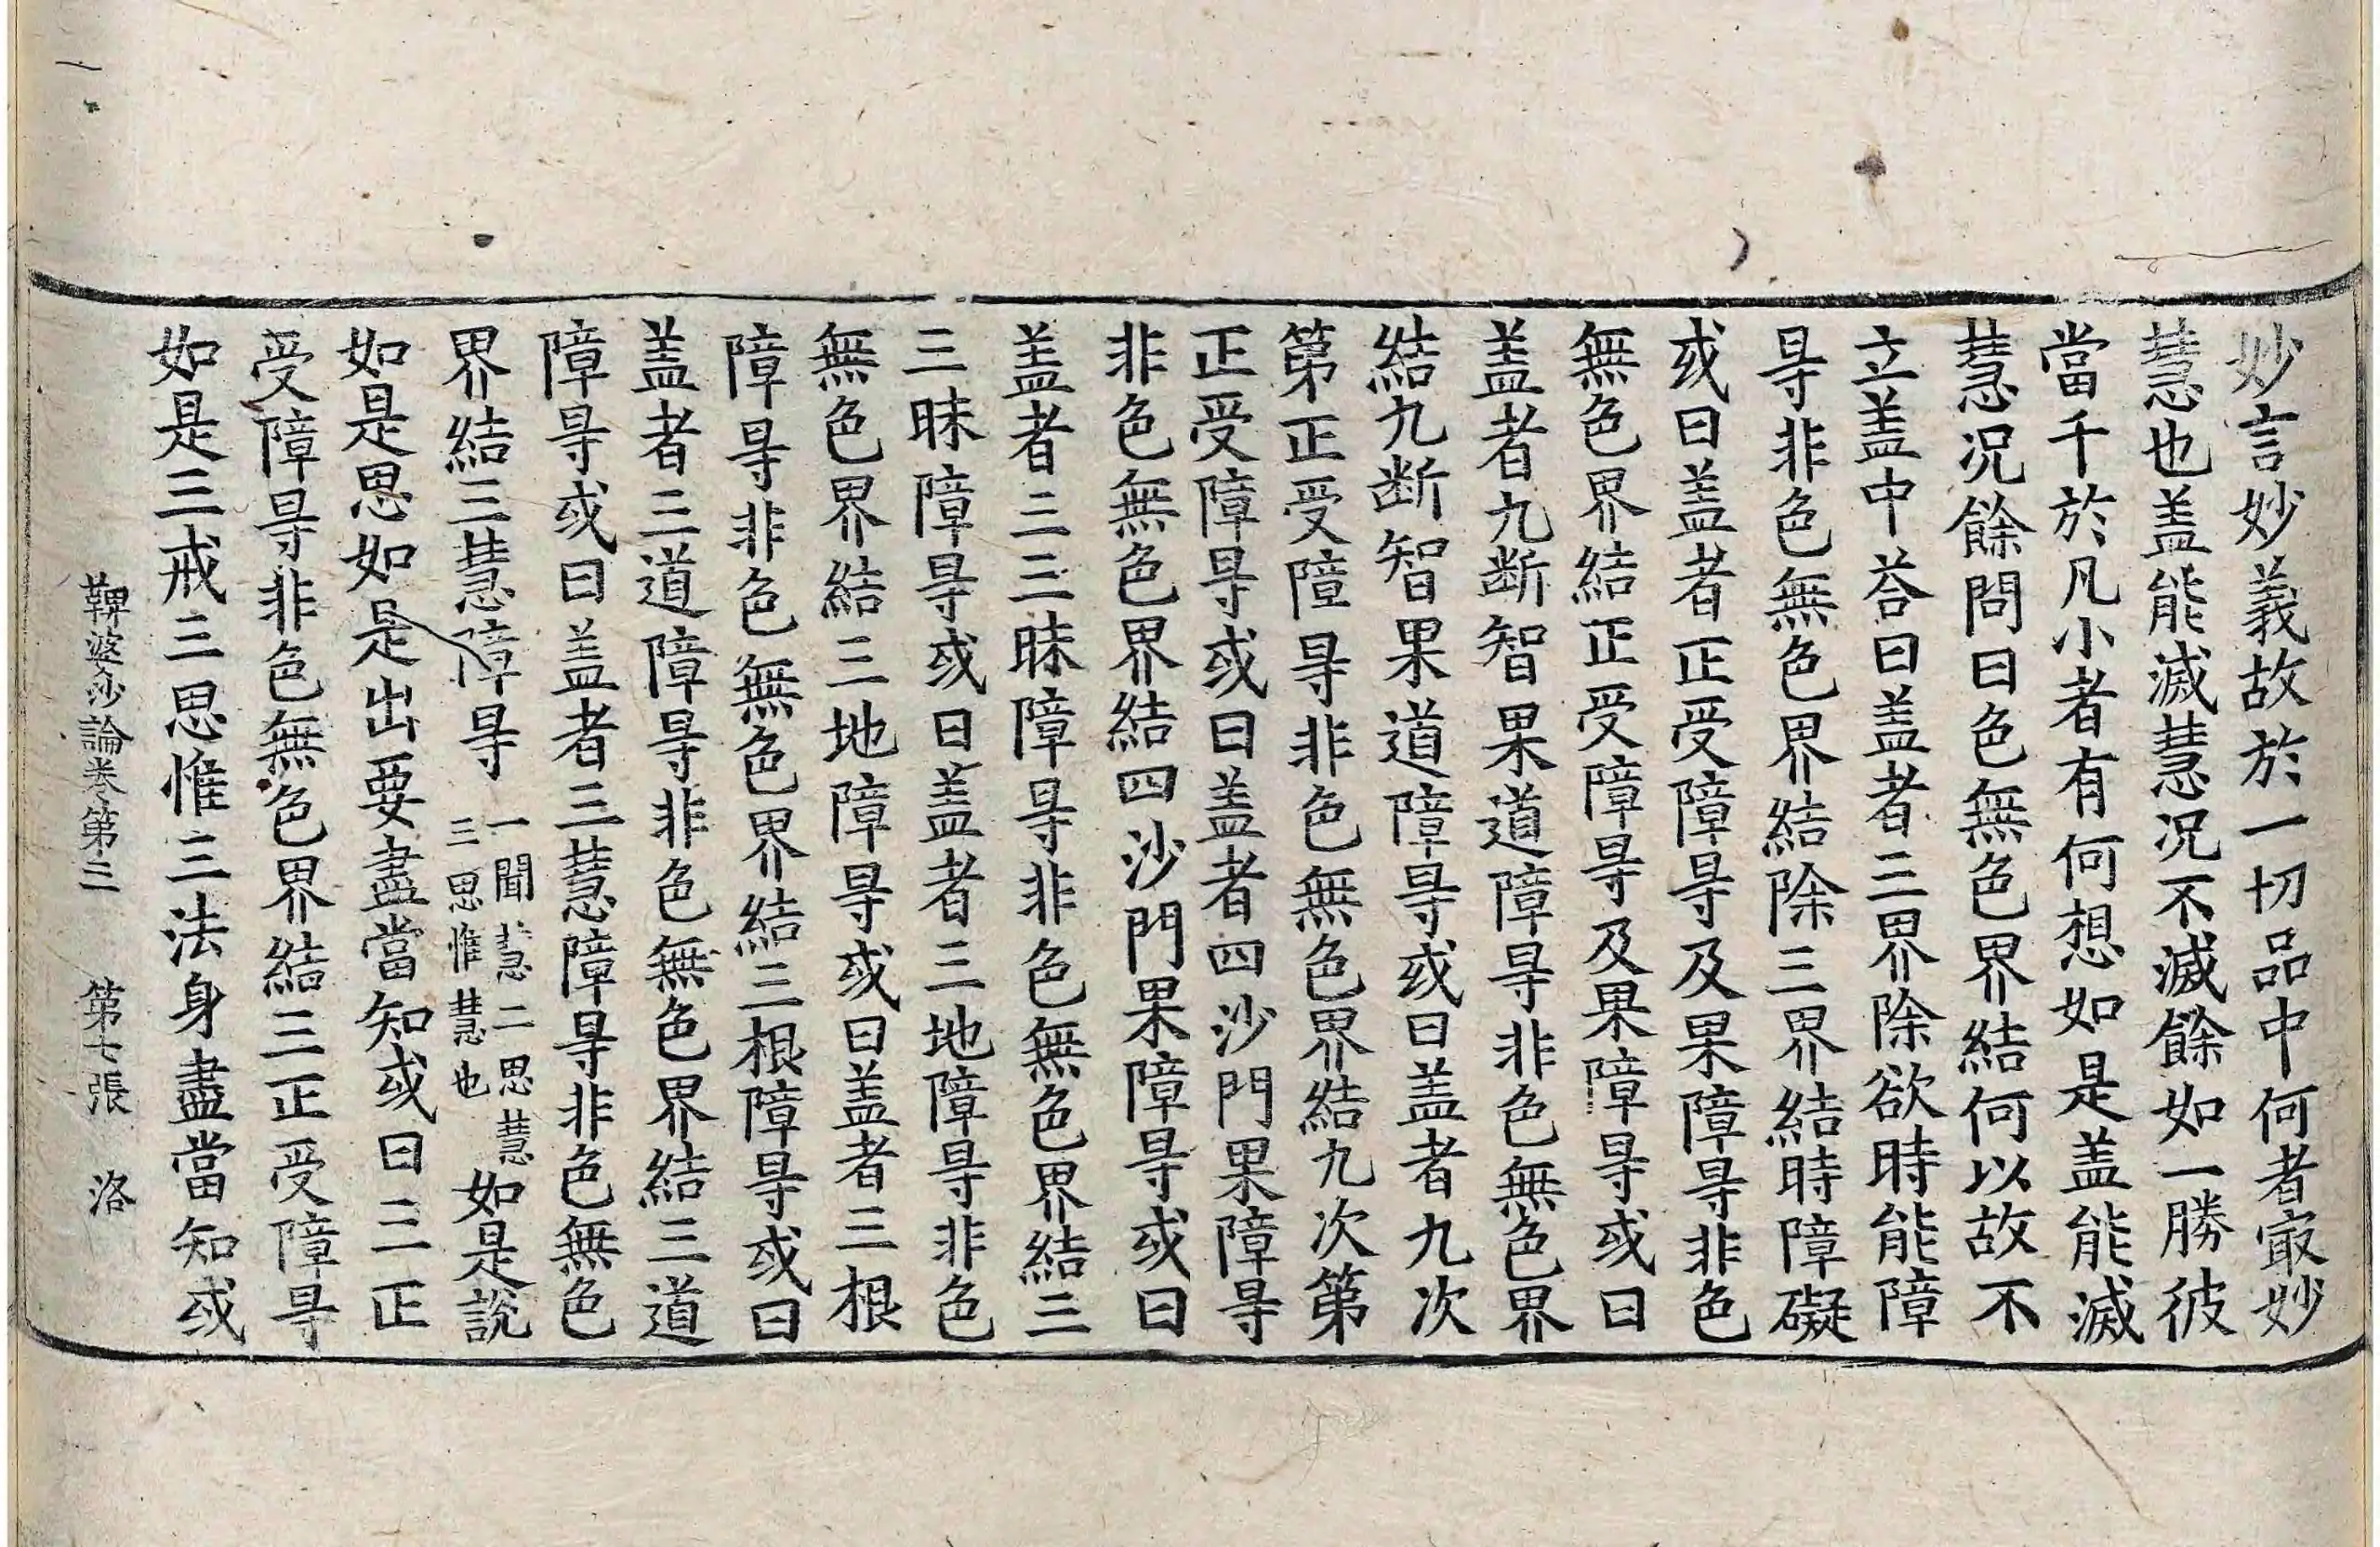 妙言妙義故於一切品中何者㝡妙
慧也盖能滅慧况不滅餘如一勝彼
當千於凡小者有何想如是盖能滅
慧况餘問曰色無色界結何以故不
立盖中荅曰盖者三界除欲時能障
㝵非色無色界結除三界結時障礙
或曰盖者正受障㝵及果障㝵非色
無色界結正受障㝵及果障㝵或曰
盖者九断智果道障㝵非色無色界
結九断智果道障㝵或曰盖者九次
第正受障㝵非色無色界結九次第
正受障㝵或曰盖者四沙門果障㝵
非色無色界結四沙門果障㝵或曰
盖者三三昧障㝵非色無色界結三
三昧障㝵或曰盖者三地障㝵非色
無色界結三地障㝵或曰盖者三根
障㝵非色無色界結三根障㝵或曰
盖者三道障㝵非色無色界結三道
障㝵或曰盖者三慧障㝵非色無色
界結三慧障㝵 一聞慧二思慧三思惟慧也 如是說
如是思如是出要盡當知或曰三正
受障㝵非色無色界結三正受障㝵
如是三戒三思惟三法身盡當知或
鞞婆沙論卷第三 第七張 洛